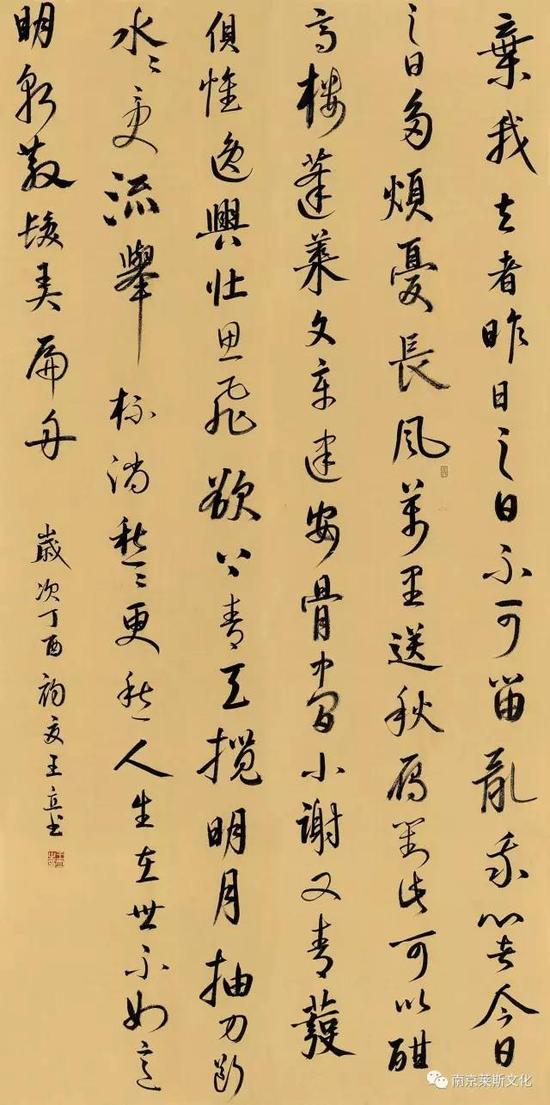 棄我去者昨日之日不可留亂我心者今日
之日多煩憂長風萬里送秋雁對此可以酣
高樓蓬萊文章建安骨中間小謝又青發
俱懷逸興壯思飛欲上青天攬明月抽刀斷
水〻更流舉杯消愁〻更愁人生在世不如意
明朝散髮弄扁舟
歲次丁酉初夏王立书
南京莱斯文化